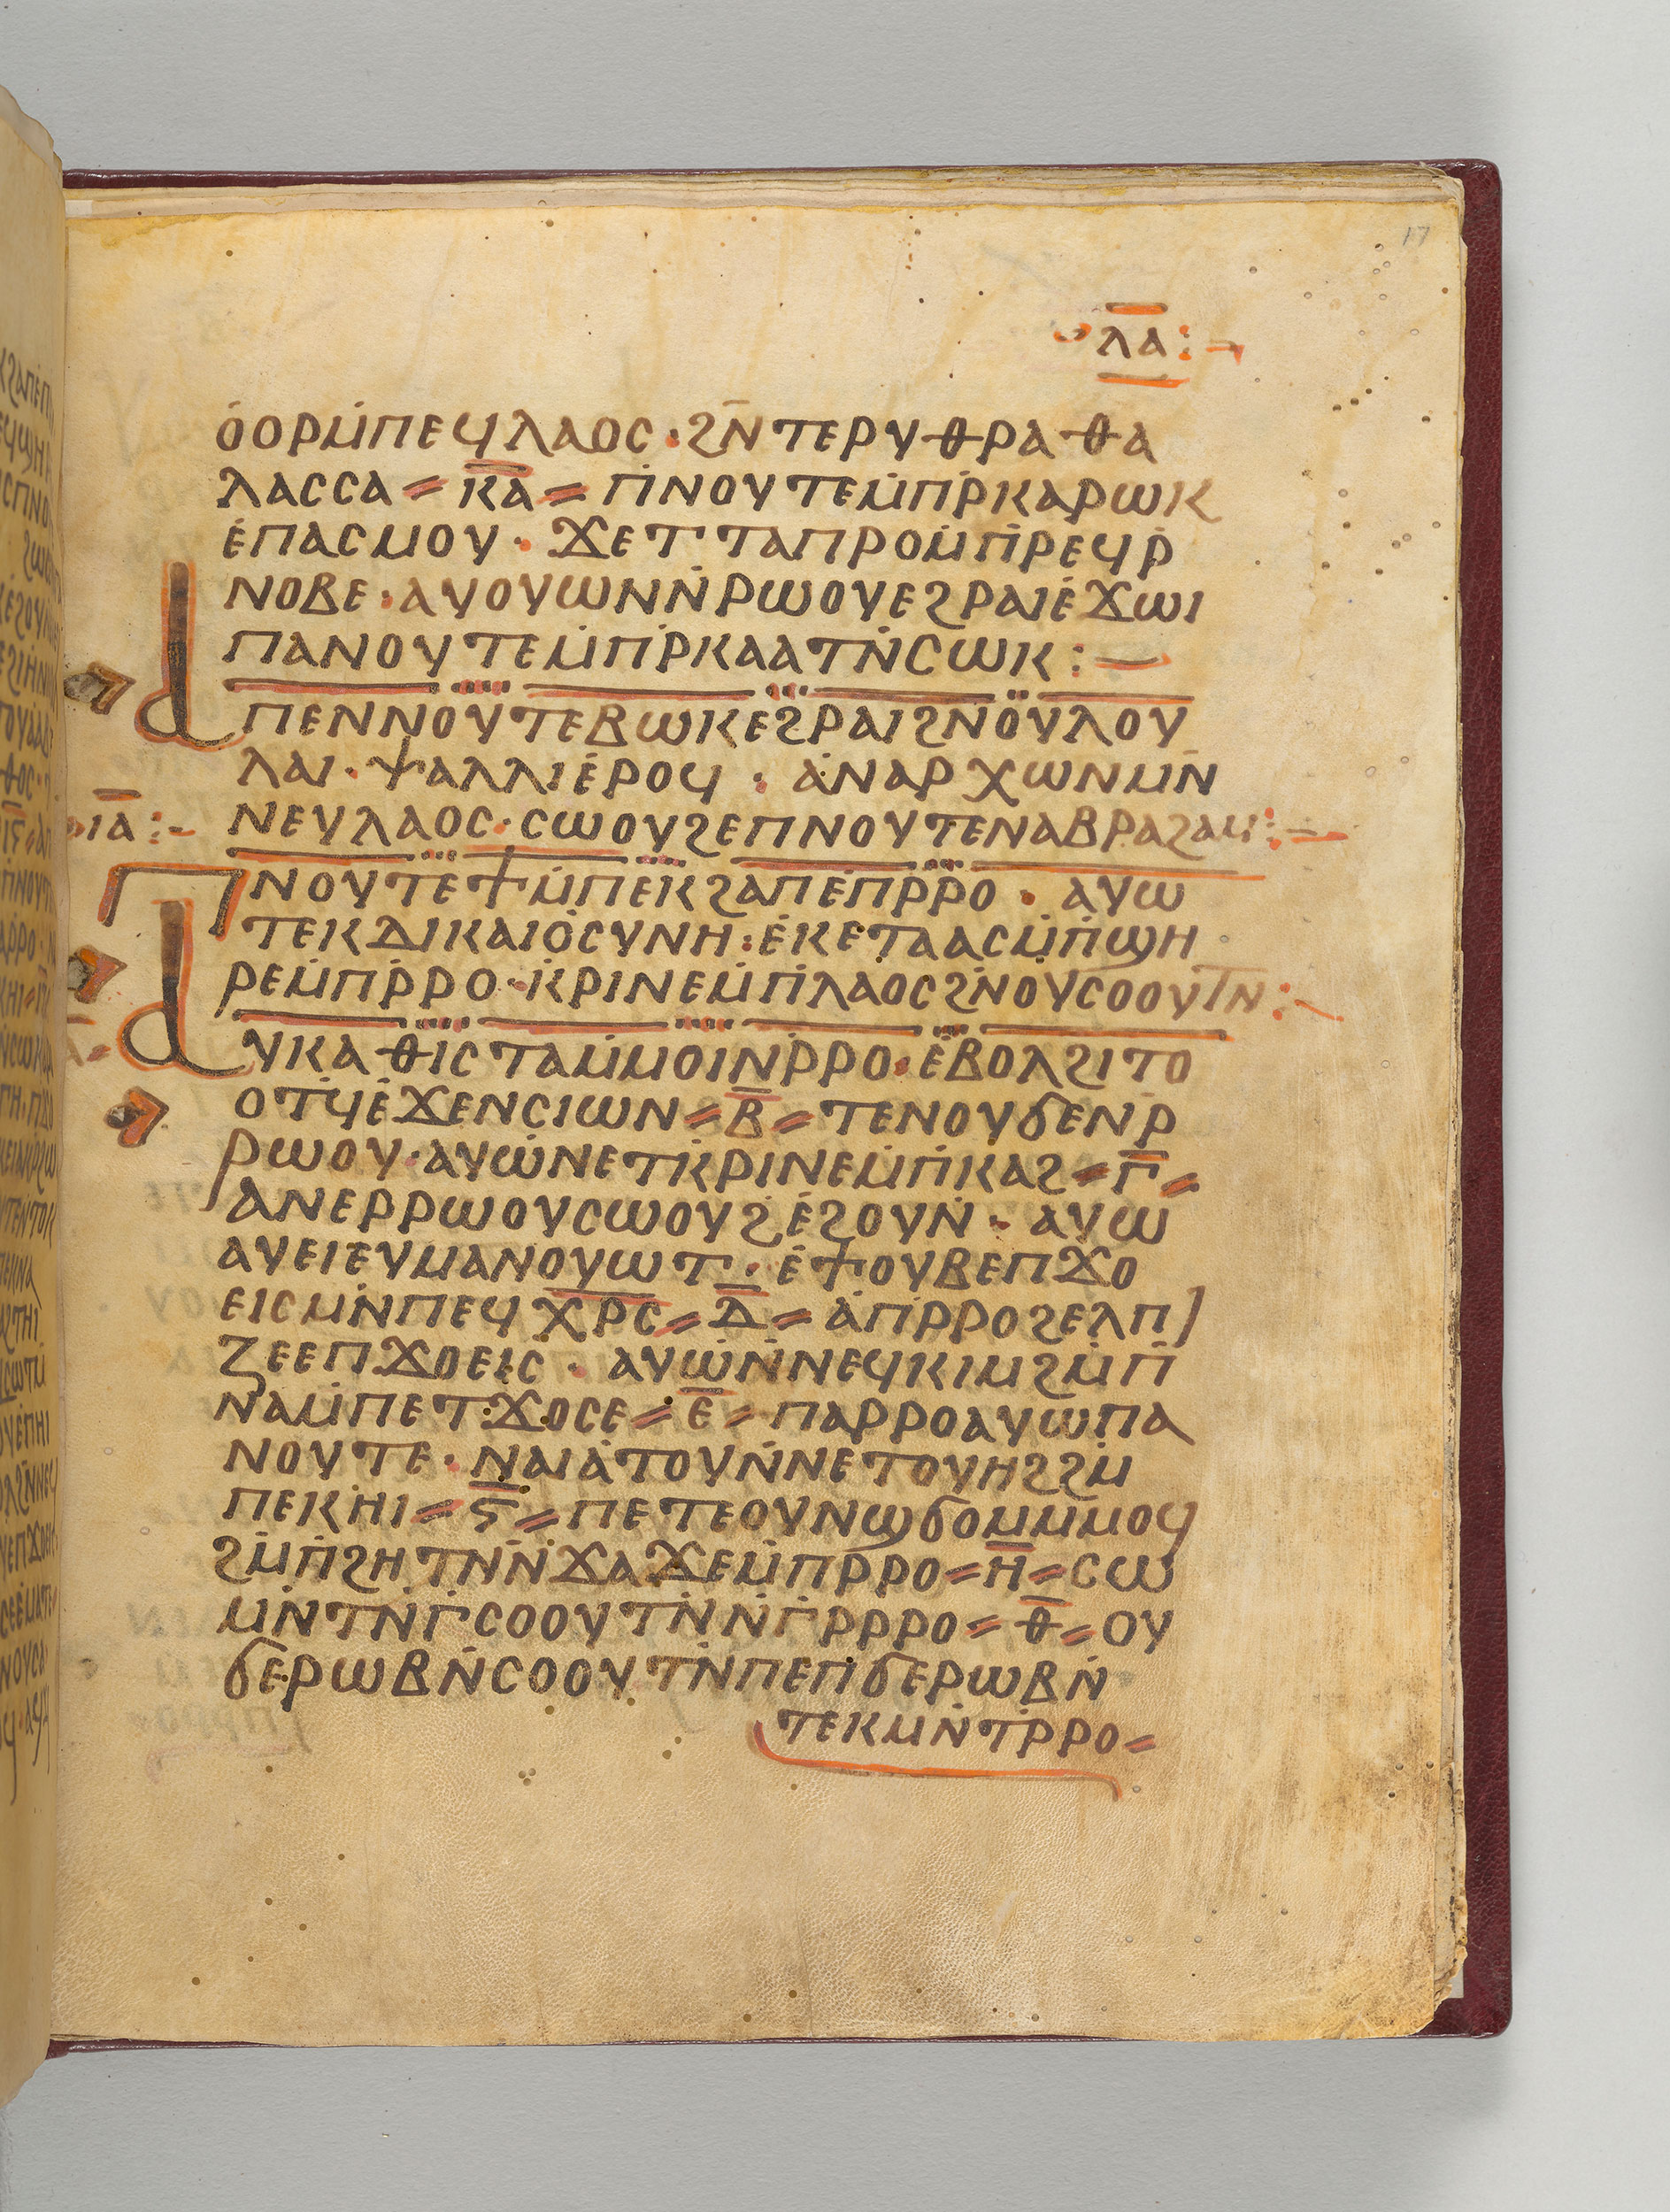 17
ⲗ̅ⲁ̅:-
ⲟ̇ⲟⲣⲙ̇ⲡⲉϥⲗⲁⲟⲥ·ϩⲛ̅ⲧⲉⲣⲩⲑⲣⲁⲑⲁ
ⲗⲁⲥⲥⲁ=ⲕ̅ⲁ̅=ⲡ̇ⲛⲟⲩⲧⲉⲙ̇ⲡⲣ̇ⲕⲁⲣⲱⲕ
ⲉ̇ⲡⲁⲥⲙⲟⲩ·ϫⲉⲧⲧⲁⲡⲣⲟⲙ̇ⲡ̇ⲣⲉϥⲣ̇
ⲛⲟⲃⲉ·ⲁⲩⲟⲩⲱⲛⲛ̇ⲣⲱⲟⲩⲉϩⲣⲁⲓⲉ̇ϫⲱⲓ
ⲡⲁⲛⲟⲩⲧⲉⲙ̇ⲡⲣ̇ⲕⲁⲁⲧⲛ̇ⲥⲱⲕ:-
ⲁⲡⲉⲛⲛⲟⲩⲧⲉⲃⲱⲕⲉϩⲣⲁⲓϩⲛⲟ̈ⲩⲗⲟⲩ
ⲗⲁⲓ·ⲯⲁⲗⲗⲓⲉ̇ⲣⲟϥ·ⲁ̇ⲛⲁⲣⲭⲱⲛⲙⲛ̅
ⲓ̅ⲁ̅:- ⲛⲉⲩⲗⲁⲟⲥ·ⲥⲱⲟⲩϩⲉⲡⲛⲟⲩⲧⲉⲛⲁⲃⲣⲁϩⲁⲙ:-
ⲡⲛⲟⲩⲧⲉϯⲙ̇ⲡⲉⲕϩⲁⲡⲉ̇ⲡⲣ̇ⲣⲟ·ⲁⲩⲱ
ⲧⲉⲕⲇⲓⲕⲁⲓⲟ̇ⲥⲩⲛⲏ:ⲉ̇ⲕⲉⲧⲁⲁⲥⲙ̇ⲡ̇ϣⲏ
ⲣⲉⲙ̇ⲡⲣ̇ⲣⲟ·ⲕ̇ⲣⲓⲛⲉⲙ̇ⲡ̇ⲗⲁⲟⲥϩⲛ̇ⲟⲩⲥⲟⲟⲩⲧⲛ̅:-
ⲁⲩⲕⲁⲑⲓⲥⲧⲁⲙ̇ⲙⲟⲓⲛ̇ⲣ̇ⲣⲟ·ⲉ̇ⲃⲟⲗϩⲓⲧⲟ
ⲟⲧϥ̇ⲉ̇ϫⲉⲛⲥⲓⲱⲛ=ⲃ̅=ⲧⲉⲛⲟⲩϭⲉⲛⲣ̇
ⲣⲱⲟⲩ·ⲁⲩⲱ̇ⲛⲉⲧⲕ̇ⲣⲓⲛⲉⲙ̇ⲡ̇ⲕⲁϩ=ⲅ̅=
ⲁⲛⲉⲣⲣⲱⲟⲩⲥⲱⲟⲩϩⲉ̇ϩⲟⲩⲛ̇·ⲁⲩⲱ
ⲁⲩⲉⲓⲉⲩⲙⲁⲛⲟⲩⲱⲧ·ⲉ̇ϯⲟⲩⲃⲉⲡϫⲟ
ⲉⲓⲥⲙⲛ̇ⲡⲉϥⲭ̅ⲣ̅ⲥ̅=ⲇ̅=ⲁ̇ⲡⲣ̇ⲣⲟϩⲉⲗⲡⲓ
ⲍⲉⲉⲡϫⲟⲉⲓⲥ·ⲁⲩⲱ̇ⲛ̇ⲛⲉϥⲕⲓⲙϩⲙ̇ⲡ̇
ⲛⲁⲙ̇ⲡⲉⲧϫⲟⲥⲉ=ⲉ̅=ⲡⲁⲣⲣⲟⲁⲩⲱⲡⲁ
ⲛⲟⲩⲧⲉ·ⲛⲁⲓⲁ̇ⲧⲟⲩⲛ̇ⲛⲉⲧⲟⲩⲏϩϩⲙ̇
ⲡⲉⲕⲏ̇ⲓ=ⲋ̅=ⲡⲉⲧⲉⲟⲩⲛϣϭⲟⲙⲙ̇ⲙⲟϥ
ϩⲙ̇ⲡ̇ϩⲏⲧⲛ̇ⲛ̇ϫⲁϫⲉⲙ̇ⲡⲣ̇ⲣⲟ=ⲏ̅=ⲥⲱ
ⲙⲛ̇ⲧⲛ̇ⲅ̇ⲥⲟⲟⲩⲧⲛ̇ⲛ̇ⲅ̇ⲣⲣⲣⲟ=ⲑ̅=ⲟⲩ
ϭⲉⲣⲱⲃⲛ̇ⲥⲟⲟⲩⲧⲛ̇ⲡⲉⲡϭⲉⲣⲱⲃⲛ̇
ⲧⲉⲕⲙⲛ̇ⲧⲣ̇ⲣⲟ=